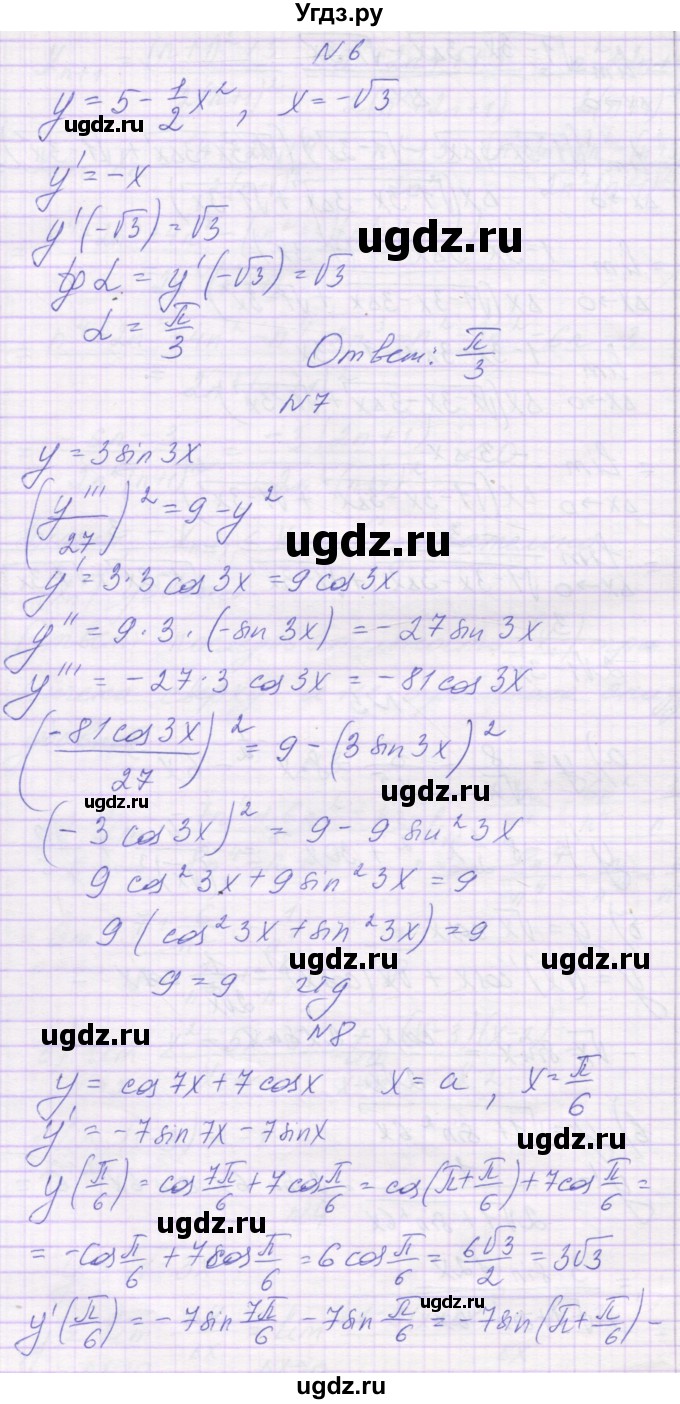 Угдз.ру
N 6
y = 5 - 1/2 x², x = -√3
ugdz.ru
y' = -x
y'(-√3) = √3
ugdz.ru
tg α = y'(-√3) = √3
α = π/3
Ответ: π/3
N 7
y = 3 sin 3x
(y'''/27)² = 9 - y²
ugdz.ru
y' = 3·3 cos 3x = 9 cos 3x
y'' = 9·3·(-sin 3x) = -27 sin 3x
y''' = -27·3 cos 3x = -81 cos 3x
(-81 cos 3x/27)² = 9 - (3 sin 3x)²
ugdz.ru ugdz.ru
(-3 cos 3x)² = 9 - 9 sin² 3x
9 cos² 3x + 9 sin² 3x = 9
9 (cos² 3x + sin² 3x) = 9
ugdz.ru ugdz.ru
9 = 9 чтд
N 8
ugdz.ru
y = cos 7x + 7 cos x x = a, x = π/6
y' = -7 sin 7x - 7 sin x
ugdz.ru
y(π/6) = cos 7π/6 + 7 cos π/6 = cos(π + π/6) + 7 cos π/6 =
ugdz.ru
= -cos π/6 + 7 cos π/6 = 6 cos π/6 = 6√3/2 = 3√3
ugdz.ru
y'(π/6) = -7 sin 7π/6 - 7 sin π/6 = -7 sin(π + π/6) -
ugdz.ru